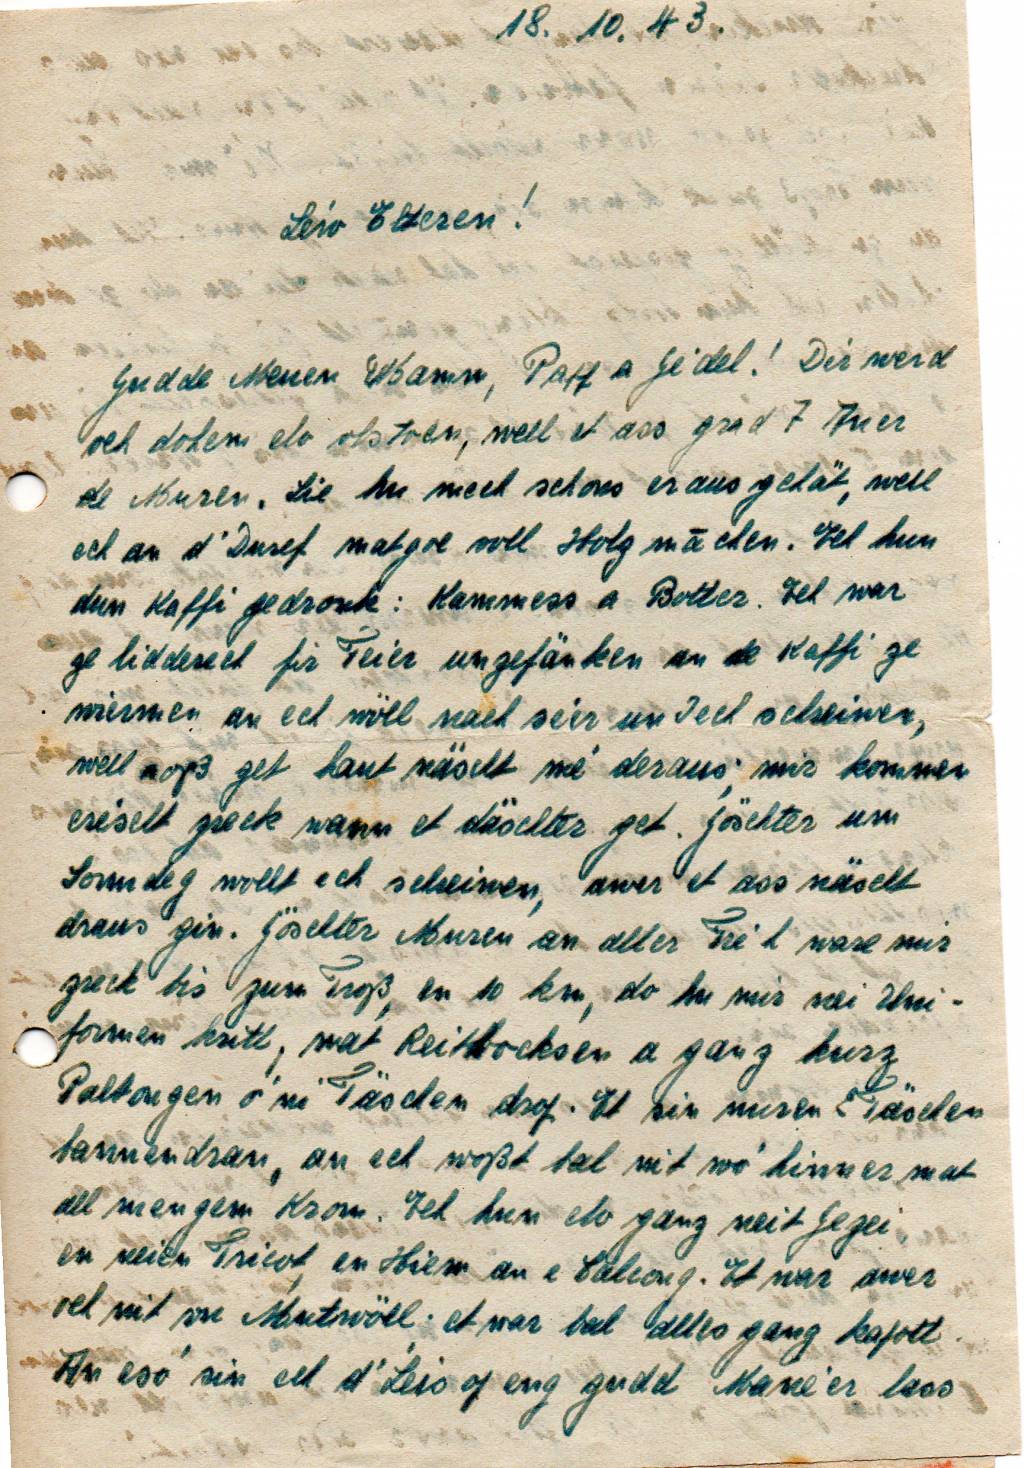 18. 10. 43.
Leiw Elteren!
Gudde Muen Mamm, Papp a Jéidel! Dir werd
och dohem elo obstoen, well et ass grad 7 Auer
de Muren. Sie hu mech schons erausgehät, well
ech an d'Duref matgoe soll Holz māchen. Ech hun
dun Kaffi gedronk: Kommess a Botter. Ech war
ze lidderech fir Feier unzefänken an de Kaffi ze
wiermen an ech wöll nach séier un Iech schreiwen,
well soß get haut näscht méi deraus; mir kommen
eréischt zreck wann et däischter get. Göschter um
Sonndeg wollt ech schreiwen, awer et ass näscht
draus gin. Göschter Muren an aller Fréi ware mir
zreck bis zum Troß, en 10 km, do hu mir nei Uni-
formen kritt, mat Reitbocksen a ganz kurz
Paltongen ó ni Täschen drop. Et sin nuren 2 Täschen
bannendran, an ech woßt bal nit wó hinner mat
all mengem Krom. Ech hun elo ganz neit Gezei,
en neien Tricot, en Hiem an e Caleçong. Et war awer
och nit vu Mutwöll; et war bal alles ganz kapott.
An esó sin ech d'Leis op eng gudd Manéier lass